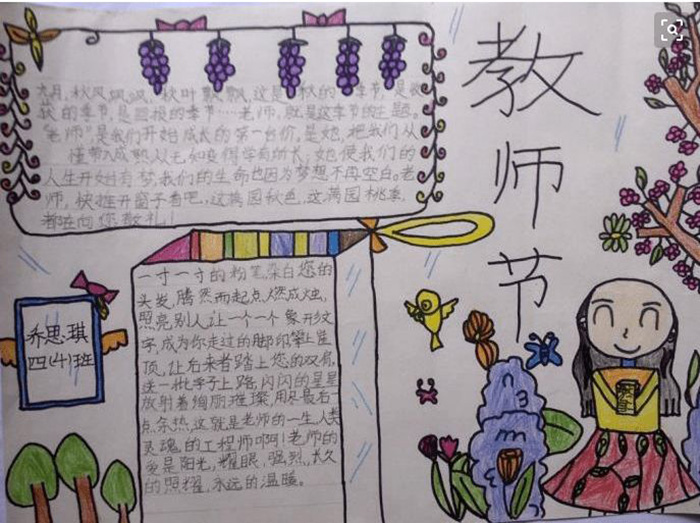 教师节
九月,秋风飒飒,秋叶飘飘,这是秋的季节,是收
获的季节,是回报的季节……老师,就是这季节的主题。
"老师"是我们开始成长的第一台价,是她,把我们从
懂带入成熟从无知变得学有所长;她使我们的
人生开始有梦,我们的生命也因为梦想不再空白。老
师,快推开窗子看吧,这满园秋色,这满园桃李,
都在向您敬礼!
一寸一寸的粉笔,染白您的
头发,腾然而起点燃成烛,
照亮别人让一个一个象形文
字,成为你走过的脚印攀上崖
顶,让后来者踏上您的双肩,
送一批学子上路,闪闪的星星
放射着绚丽璀璨,用尽最后一
点余热,这就是老师的一生人类
灵魂的工程师啊!老师的
爱是阳光,耀眼,强烈,长久
的照耀,永远的温暖。
乔思琪
四(4)班